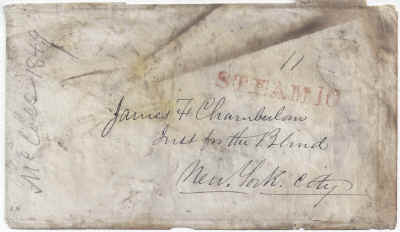 11
STEAM 10
James F Chamberlain
Inst for the Blind
New. York. City
1849